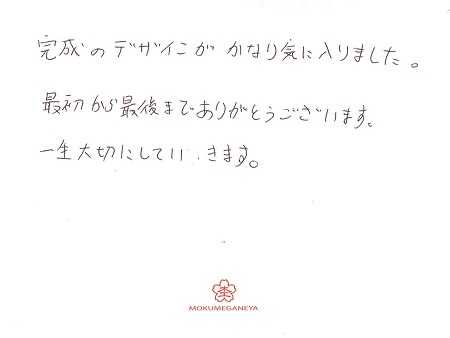 完成のデザインがかなり気に入りました。
最初から最後までありがとうございます。
一生大切にしていきます。
MOKUMEGANEYA